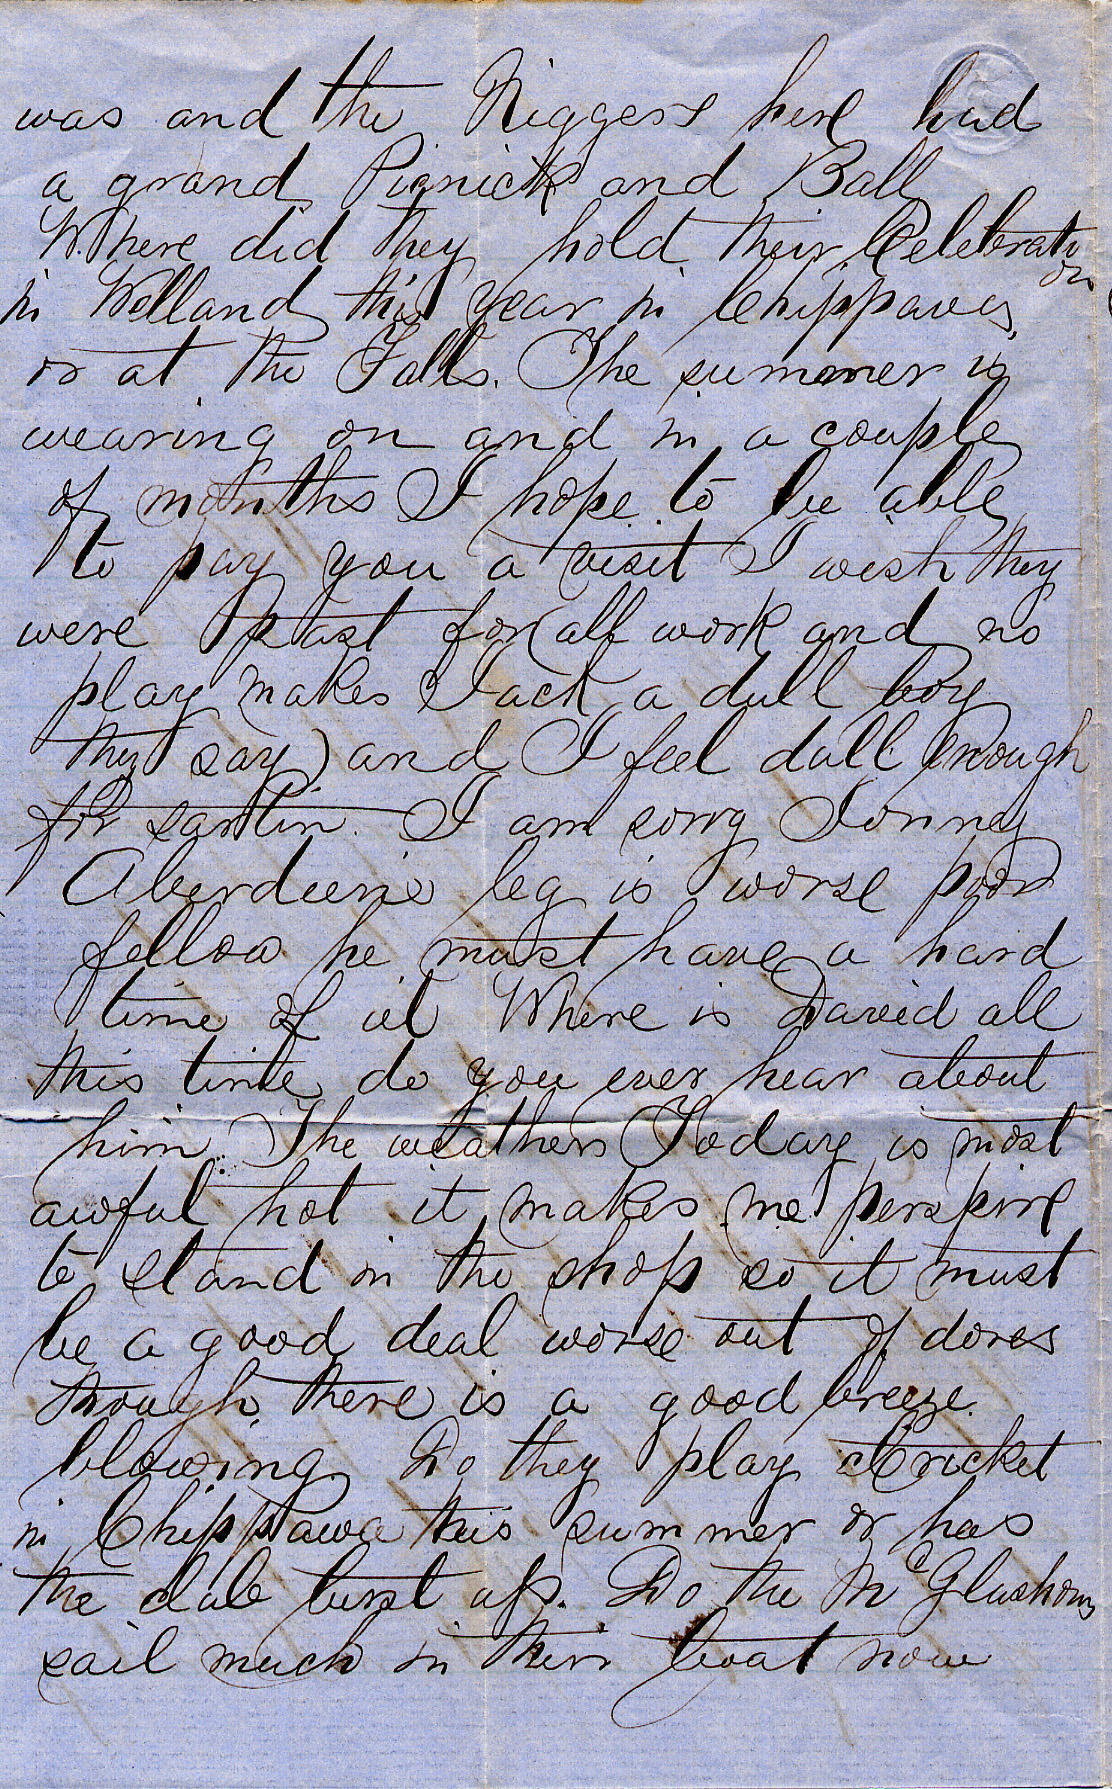 was and the Niggers here had
a grand Picnick and Ball
Where did they hold their Celebration
in Welland this year in Chippawa,
or at the Falls. The summer is
wearing on and in a couple
of months I hope to be able
to pay you a visit I wish they
were past for (all work and no
play makes Jack a dull boy
they say) and I feel dull enough
for sartin. I am sorry Jonney
Aberdeens leg is worse poor
fellow he must have a hard
time of it Where is David all
this time do you ever hear about
him. The weathers Today is most
awful hot it makes me perspire
to stand in the shop so it must
be a good deal worse out of dores
though there is a good breeze
blowing Do they play Cricket
in Chippawa this summer or has
the club burst up. Do the McGlashons
sail much in their boat now